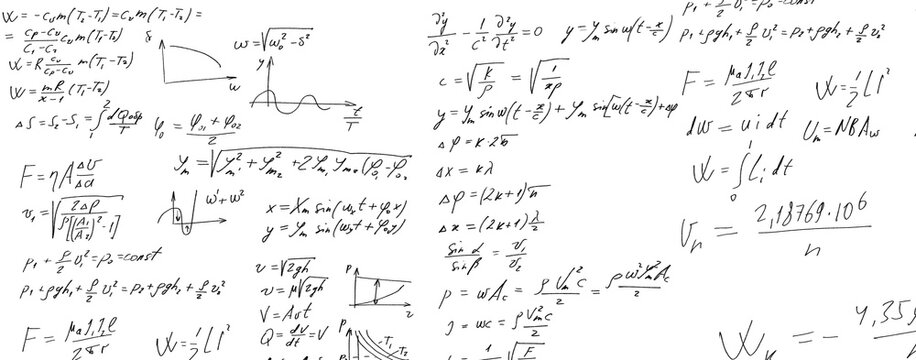 W = -cᵥm(T₂-T₁) = cᵥm(T₁-T₂) =
= (cₚ-cᵥ)/(C₁-C₂) cᵥ m(T₁-T₂)
W = R cᵥ/(cₚ-cᵥ) m(T₁-T₂)
W = mR/(x-1) (T₁-T₂)
ΔS = S₂-S₁ = ∫₁² dQ/T
δ
ω
ω = √(ω₀²-δ²)
y
t/T
φ₀ = (φ₀₁+φ₀₂)/2
F = ηA Δv/Δd
yₘ = √(yₘ₁²+yₘ₂²+2yₘ₁yₘ₂(φ₀₁-φ₀₂
v₁ = √(2Δp/(ρ[(A₁/A₂)²-1]))
ω¹+ω²
x = Xₘ sin(ω₁t+φ₀x)
y = yₘ sin(ω₂t+φ₀y)
p₁ + ρ/2 v₁² = p₀ = const
p₁+ρgh₁+ρ/2 v₁² = p₂+ρgh₂+ρ/2 v₂²
F = μₐI₁I₂ℓ/2πr
W = ½LI²
v = √2gh
v = μ√2gh
V = Avt
Q = dv/dt = V
P
τ
P
T₁
T₂
∂²y/∂x² - 1/c² ∂²y/∂t² = 0
y = yₘ sin ω(t-x/c)
c = √(k/ρ) = √(1/xρ)
y = yₘ sin ω(t-x/c) + yₘ sin[ω(t-x/c)+Δφ
Δφ = k·2π
Δx = kλ
Δφ = (2k+1)π
Δx = (2k+1)λ/2
sin α/sin β = v₁/v₂
p = wAc = ρVₘ²c/2 = ρω²yₘ²Ac/2
J = wc = ρVₘ²c/2
p₁+ρgh₁+ρ/2 v₁² = p₂+ρgh₂+ρ/2 v₂²
F = μₐI₁I₂ℓ/2πr
W = ½LI²
dW = uidt
Uₘ = NBAω
W = ∫₀ᴵ Li dt
vₙ = 2,18769·10⁶/n
Wₖ = - 4,35